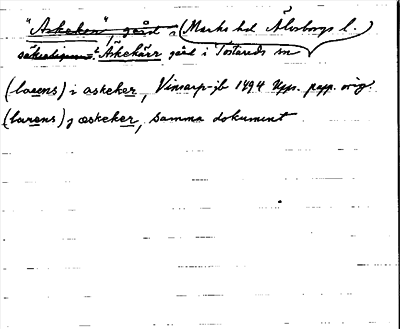 "Askeken", gård a (Marks hd Älvsborgs l.
säkerligen = Äskekärr gård i Tostareds sn
(laurens) i askeker, Vinsarp-jb 1494 Upps. papp. orig.
(larens) j æskeker, samma dokument